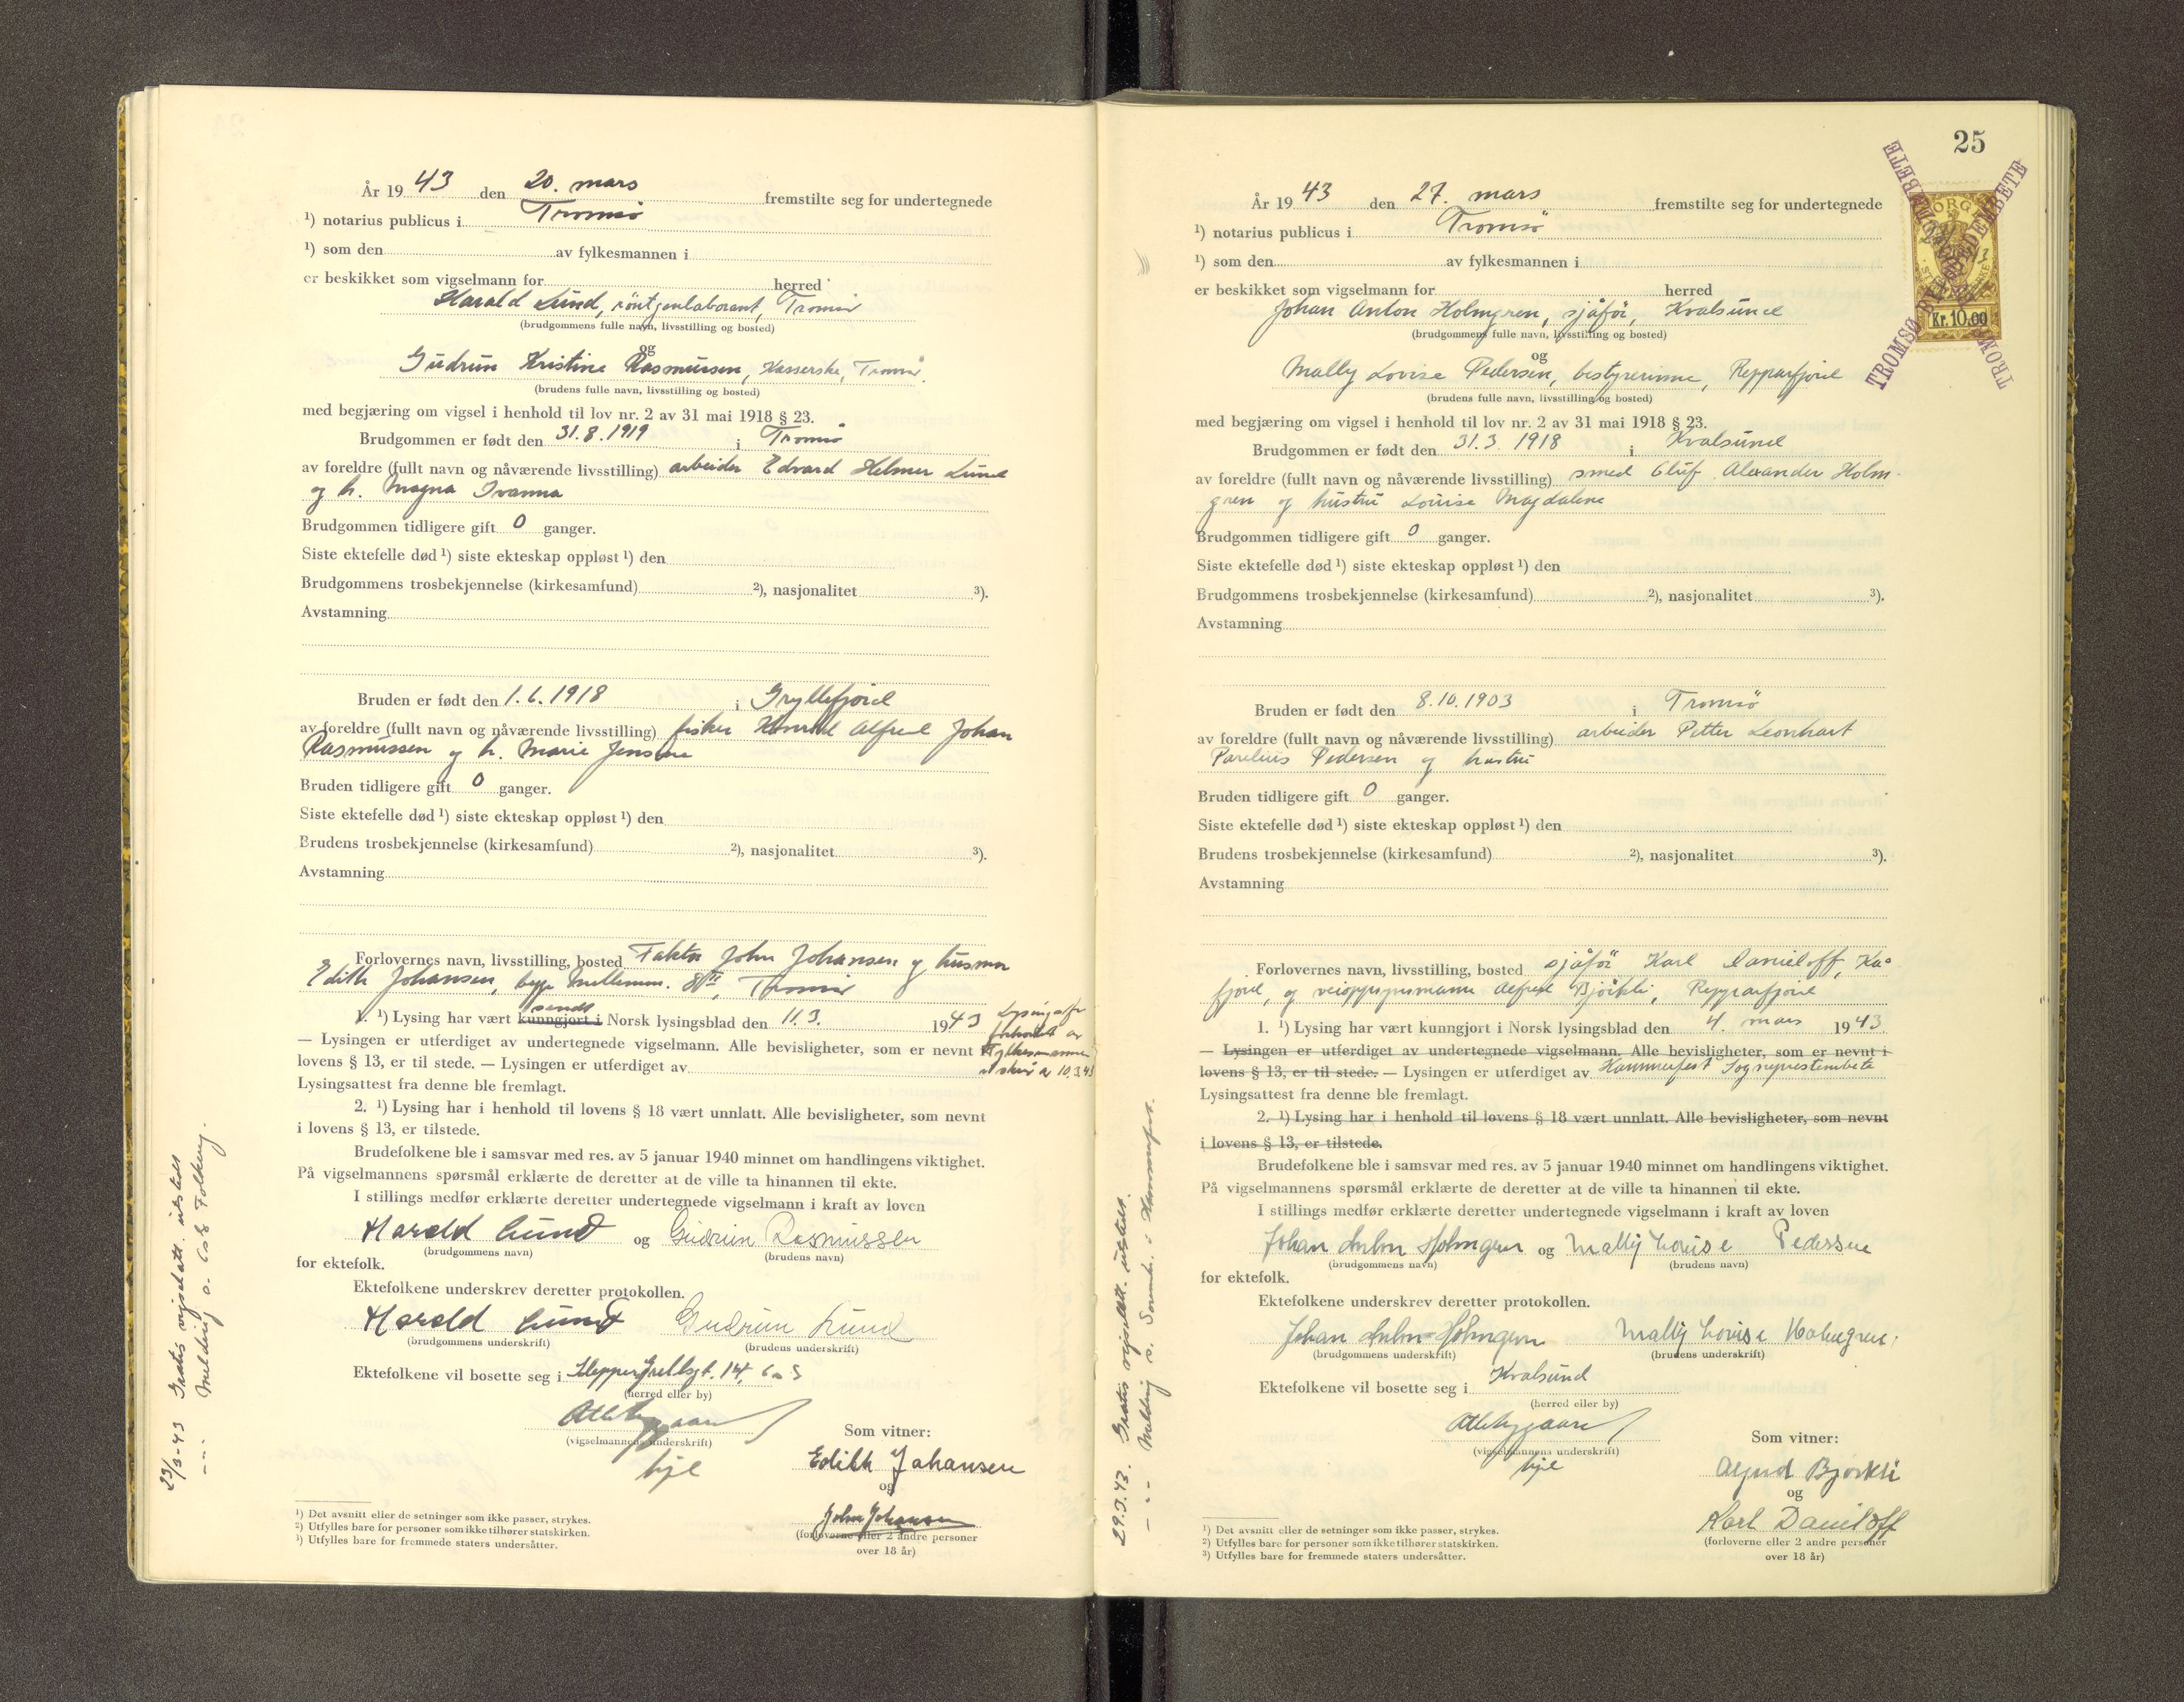 År 1943 den 20. mars fremstilte seg for undertegnede
¹) notarius publicus i Tromsö
¹) som den av fylkesmannen i
er beskikket som vigselmann for herred
Harald Lund, röntgenlaborant, Tromsö
(brudgommens fulle navn, livsstilling og bosted)
og
Gudrun Kristine Rasmussen, Kasserske, Tromsö.
(brudens fulle navn, livsstilling og bosted)
med begjæring om vigsel i henhold til lov nr. 2 av 31 mai 1918 § 23.
Brudgommen er født den 31.8.1919 i Tromsö
av foreldre (fullt navn og nåværende livsstilling) arbeider Edvard Helmer Lund
og h. Magna Ivanna
Brudgommen tidligere gift 0 ganger.
Siste ektefelle død ¹) siste ekteskap oppløst ¹) den
Brudgommens trosbekjennelse (kirkesamfund) ²), nasjonalitet ³).
Avstamning
Bruden er født den 1.6.1918 i Gryllefjord
av foreldre (fullt navn og nåværende livsstilling) fisker Alfred Johan
Rasmussen og h. Marie Jensine
Bruden tidligere gift 0 ganger.
Siste ektefelle død ¹) siste ekteskap oppløst ¹) den
Brudens trosbekjennelse (kirkesamfund) ²), nasjonalitet ³).
Avstamning
Forlovernes navn, livsstilling, bosted Faktor John Johansen og husmor
Edith Johansen, begge Tromsö
sendt
1. ¹) Lysing har vært kunngjort i Norsk lysingsblad den 11.3. 1943
— Lysingen er utferdiget av undertegnede vigselmann. Alle bevisligheter, som er nevnt i
lovens § 13, er til stede. — Lysingen er utferdiget av
Lysingsattest fra denne ble fremlagt.
2. ¹) Lysing har i henhold til lovens § 18 vært unnlatt. Alle bevisligheter, som nevnt
i lovens § 13, er tilstede.
Brudefolkene ble i samsvar med res. av 5 januar 1940 minnet om handlingens viktighet.
På vigselmannens spørsmål erklærte de deretter at de ville ta hinannen til ekte.
I stillings medfør erklærte deretter undertegnede vigselmann i kraft av loven
Harald Lund og Gudrun Rasmussen
(brudgommens navn) (brudens navn)
for ektefolk.
Ektefolkene underskrev deretter protokollen.
Harald Lund Gudrun Lund
(brudgommens underskrift) (brudens underskrift)
Ektefolkene vil bosette seg i
(herred eller by)
(vigselmannens underskrift)
Som vitner:
Edith Johansen
og
John Johansen
(forloverne eller 2 andre personer
over 18 år)
¹) Det avsnitt eller de setninger som ikke passer, strykes.
²) Utfylles bare for personer som ikke tilhører statskirken.
³) Utfylles bare for fremmede staters undersåtter.
23/3-43 Gratis vigselatt. utstedt
-"- Melding s. Folkereg.
25
NORGE
Kr. 10.00
TROMSØ BYFOGDEMBETE
År 1943 den 27. mars fremstilte seg for undertegnede
¹) notarius publicus i Tromsö
¹) som den av fylkesmannen i
er beskikket som vigselmann for herred
Johan Anton Holmgren, sjåför, Kvalsund
(brudgommens fulle navn, livsstilling og bosted)
og
Mally Lovise Pedersen, bestyrerinne, Repparfjord
(brudens fulle navn, livsstilling og bosted)
med begjæring om vigsel i henhold til lov nr. 2 av 31 mai 1918 § 23.
Brudgommen er født den 31.3.1918 i Kvalsund
av foreldre (fullt navn og nåværende livsstilling) smed Oluf Alexander Holm-
gren og hustru Louise Magdalene
Brudgommen tidligere gift 0 ganger.
Siste ektefelle død ¹) siste ekteskap oppløst ¹) den
Brudgommens trosbekjennelse (kirkesamfund) ²), nasjonalitet ³).
Avstamning
Bruden er født den 8.10.1903 i Tromsö
av foreldre (fullt navn og nåværende livsstilling) arbeider Petter Leonhart
Parelius Pedersen og hustru
Bruden tidligere gift 0 ganger.
Siste ektefelle død ¹) siste ekteskap oppløst ¹) den
Brudens trosbekjennelse (kirkesamfund) ²), nasjonalitet ³).
Avstamning
Forlovernes navn, livsstilling, bosted sjåför Karl Danieloff, Kå-
fjord, og Alfred Björkli, Repparfjord
1. ¹) Lysing har vært kunngjort i Norsk lysingsblad den 4. mars 1943
— Lysingen er utferdiget av undertegnede vigselmann. Alle bevisligheter, som er nevnt i
lovens § 13, er til stede. — Lysingen er utferdiget av Hammerfest Sogneprestembete
Lysingsattest fra denne ble fremlagt.
2. ¹) Lysing har i henhold til lovens § 18 vært unnlatt. Alle bevisligheter, som nevnt
i lovens § 13, er tilstede.
Brudefolkene ble i samsvar med res. av 5 januar 1940 minnet om handlingens viktighet.
På vigselmannens spørsmål erklærte de deretter at de ville ta hinannen til ekte.
I stillings medfør erklærte deretter undertegnede vigselmann i kraft av loven
Johan Anton Holmgren og Mally Lovise Pedersen
(brudgommens navn) (brudens navn)
for ektefolk.
Ektefolkene underskrev deretter protokollen.
Johan Anton Holmgren Mally Lovise Holmgren
(brudgommens underskrift) (brudens underskrift)
Ektefolkene vil bosette seg i Kvalsund
(herred eller by)
(vigselmannens underskrift)
Som vitner:
Alfred Bjørkli
og
Karl Daniloff
(forloverne eller 2 andre personer
over 18 år)
¹) Det avsnitt eller de setninger som ikke passer, strykes.
²) Utfylles bare for personer som ikke tilhører statskirken.
³) Utfylles bare for fremmede staters undersåtter.
29.3.43. Gratis vigselatt. utstedt.
-"- Melding s. Hammerfest.